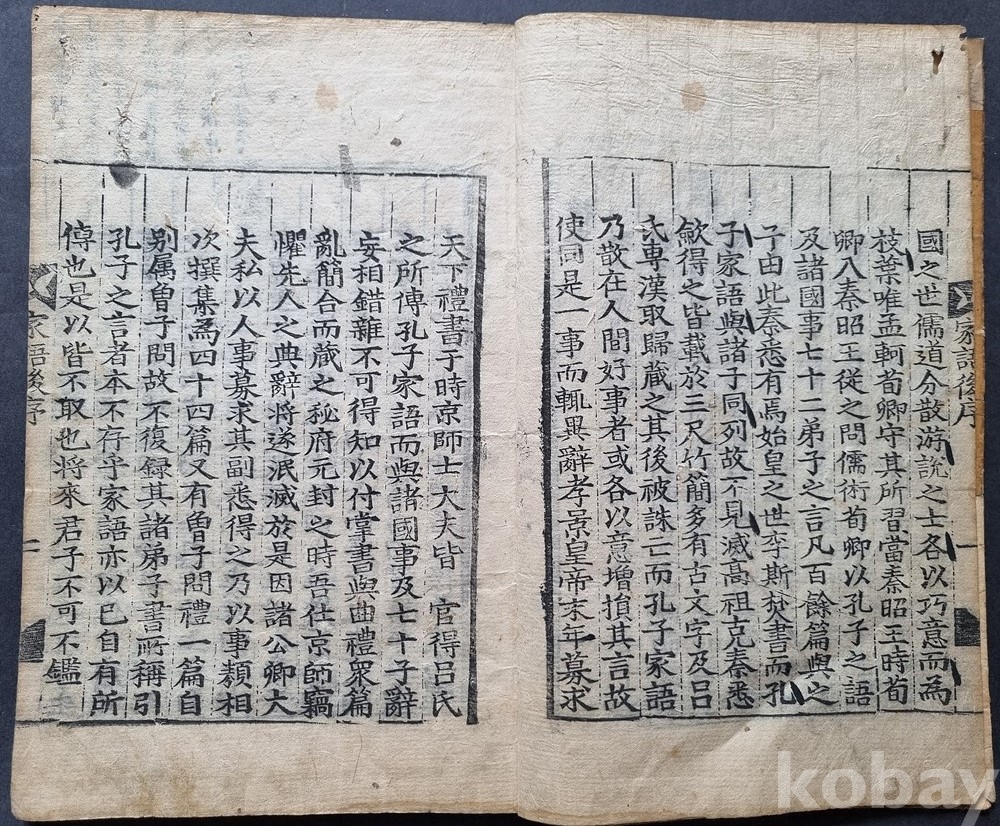 家語後序 一
國之世儒道分散游說之士各以巧意而為
枝葉唯孟軻荀卿守其所習當秦昭王時荀
卿入秦昭王從之問儒術荀卿以孔子之語
及諸國事七十二弟子之言凡百餘篇與之
予由此秦悉有焉始皇之世李斯焚書而孔
子家語與諸子同列故不見滅高祖克秦悉
歛得之皆載於三尺竹簡多有古文字及呂
氏專漢取歸蔵之其後被誅亡而孔子家語
乃散在人間好事者或各以意增損其言故
使同是一事而輒異辭孝景皇帝末年募求
天下禮書于時京師士大夫皆 官得呂氏
之所傳孔子家語而與諸國事及七十子辭
妄相錯雜不可得知以付掌書與曲禮衆篇
亂簡合而蔵之秘府元封之時吾仕京師竊
懼先人之典辭將遂泯滅於是因諸公卿大
夫私以人事募求其副悉得之乃以事類相
次撰集為四十四篇又有曽子問禮一篇自
别属曽子問故不復録其諸弟子書所稱引
孔子之言者本不存乎家語亦以已自有所
傳也是以皆不取也将來君子不可不鑑
家語後序 二
kobay